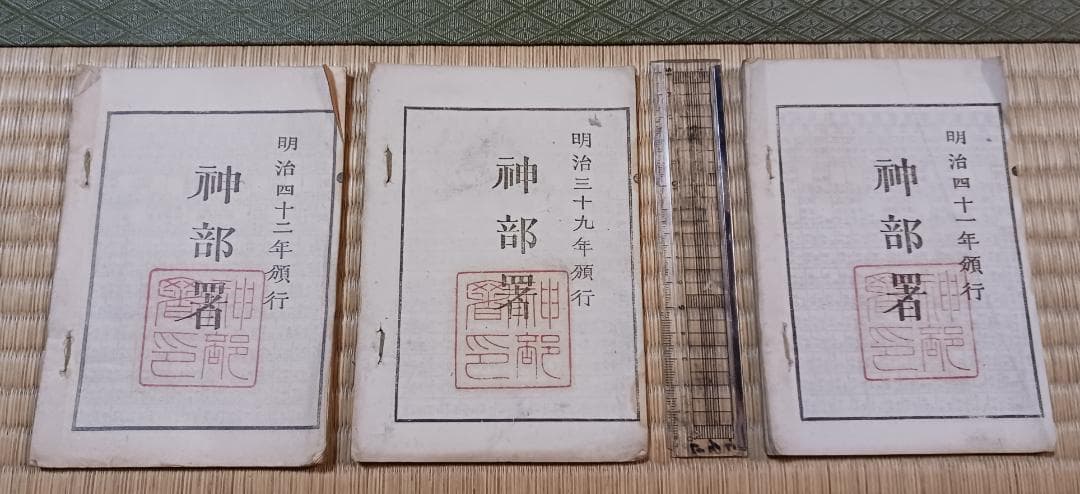 明治四十二年頒行
神部署
神部署印
明治三十九年頒行
神部署
神部署印
明治四十一年頒行
神部署
神部署印